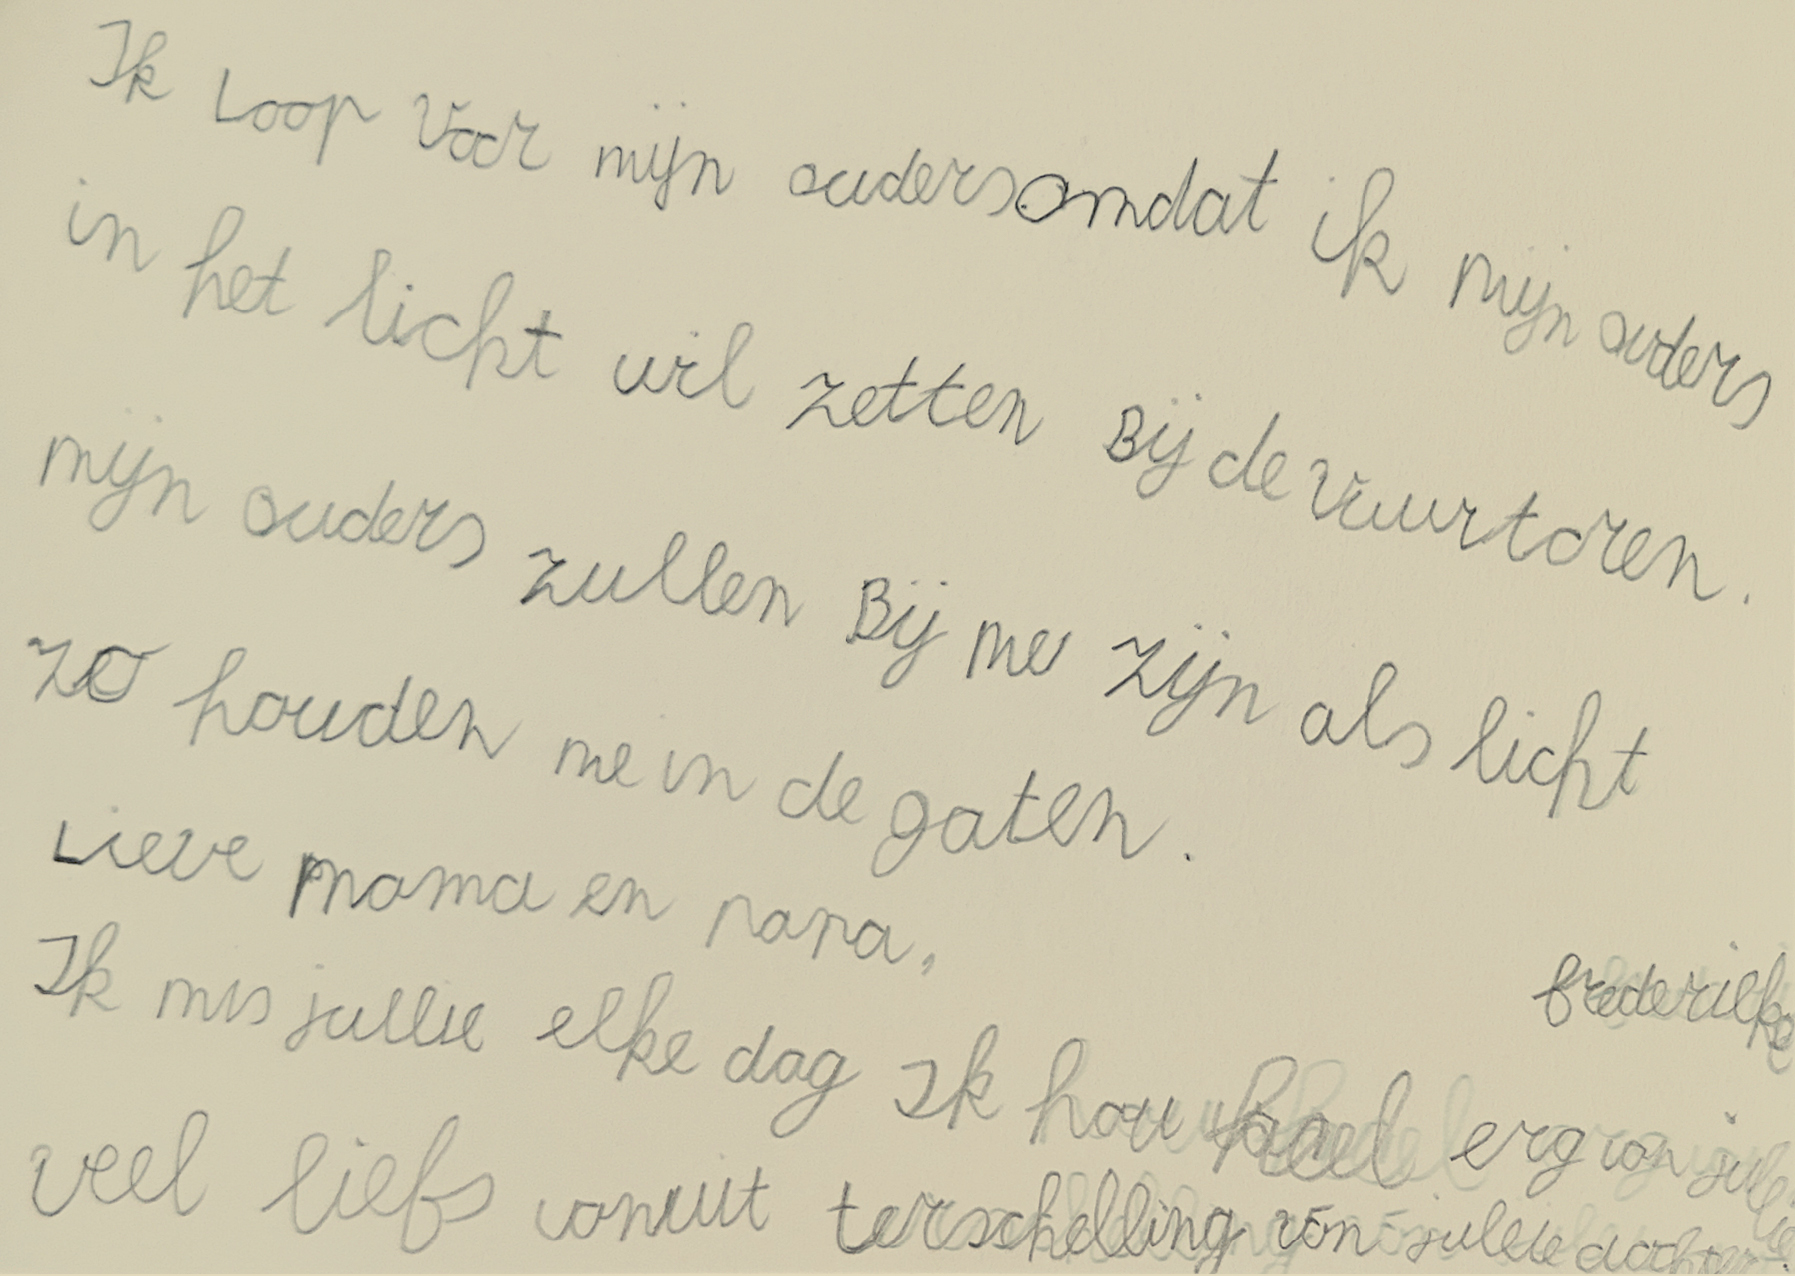 Ik Loop voor mijn ouders omdat ik mijn ouders
in het licht wil zetten Bij de vuurtoren.
mijn ouders zullen Bij me zijn als licht
zo houden me in de gaten.
Lieve mama en papa,
Ik mis jullie elke dag Ik hou heel erg van jullie
veel liefs vanuit terschelling van jullie dochter.
frederieke